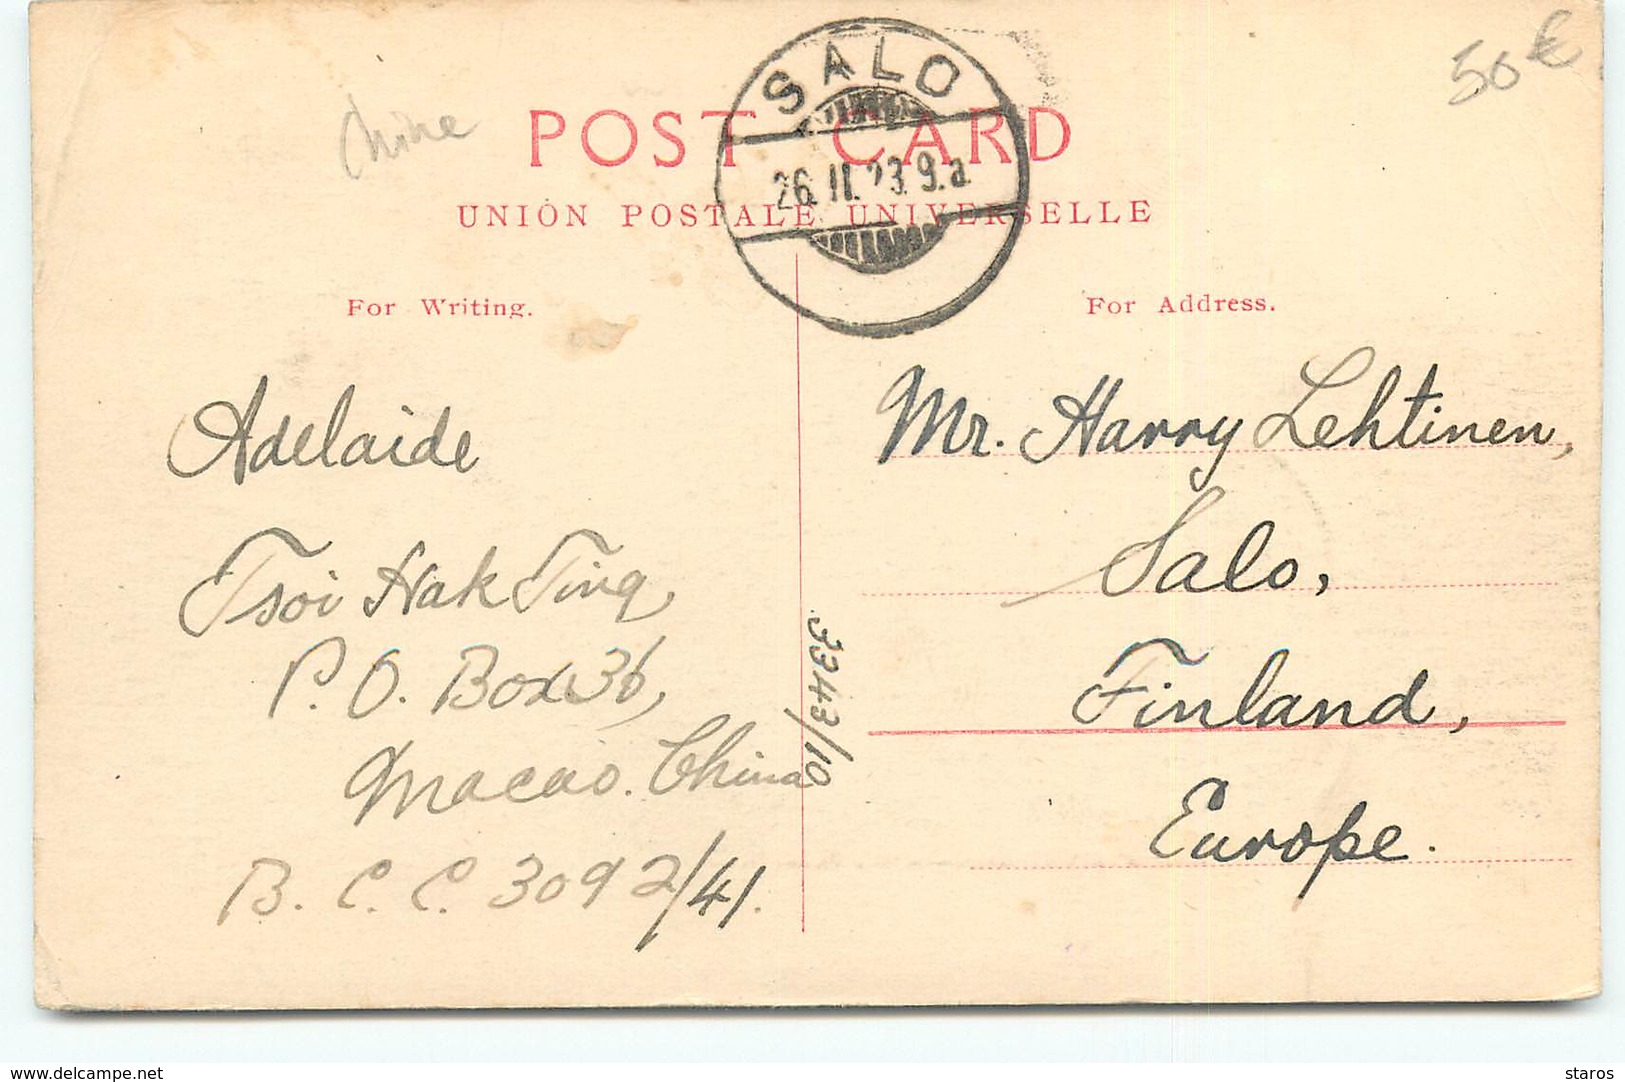 SALO
26. II. 23. 9.a
50 €
Chine
POST CARD
UNION POSTALE UNIVERSELLE
For Writing.
For Address.
Adelaide
Tsoi Hak Ting,
P. O. Box 36,
Macao. China
B. C. C. 3092/41.
3343/10
Mr. Harry Lehtinen,
Salo,
Finland,
Europe.
www.delcampe.net
staros